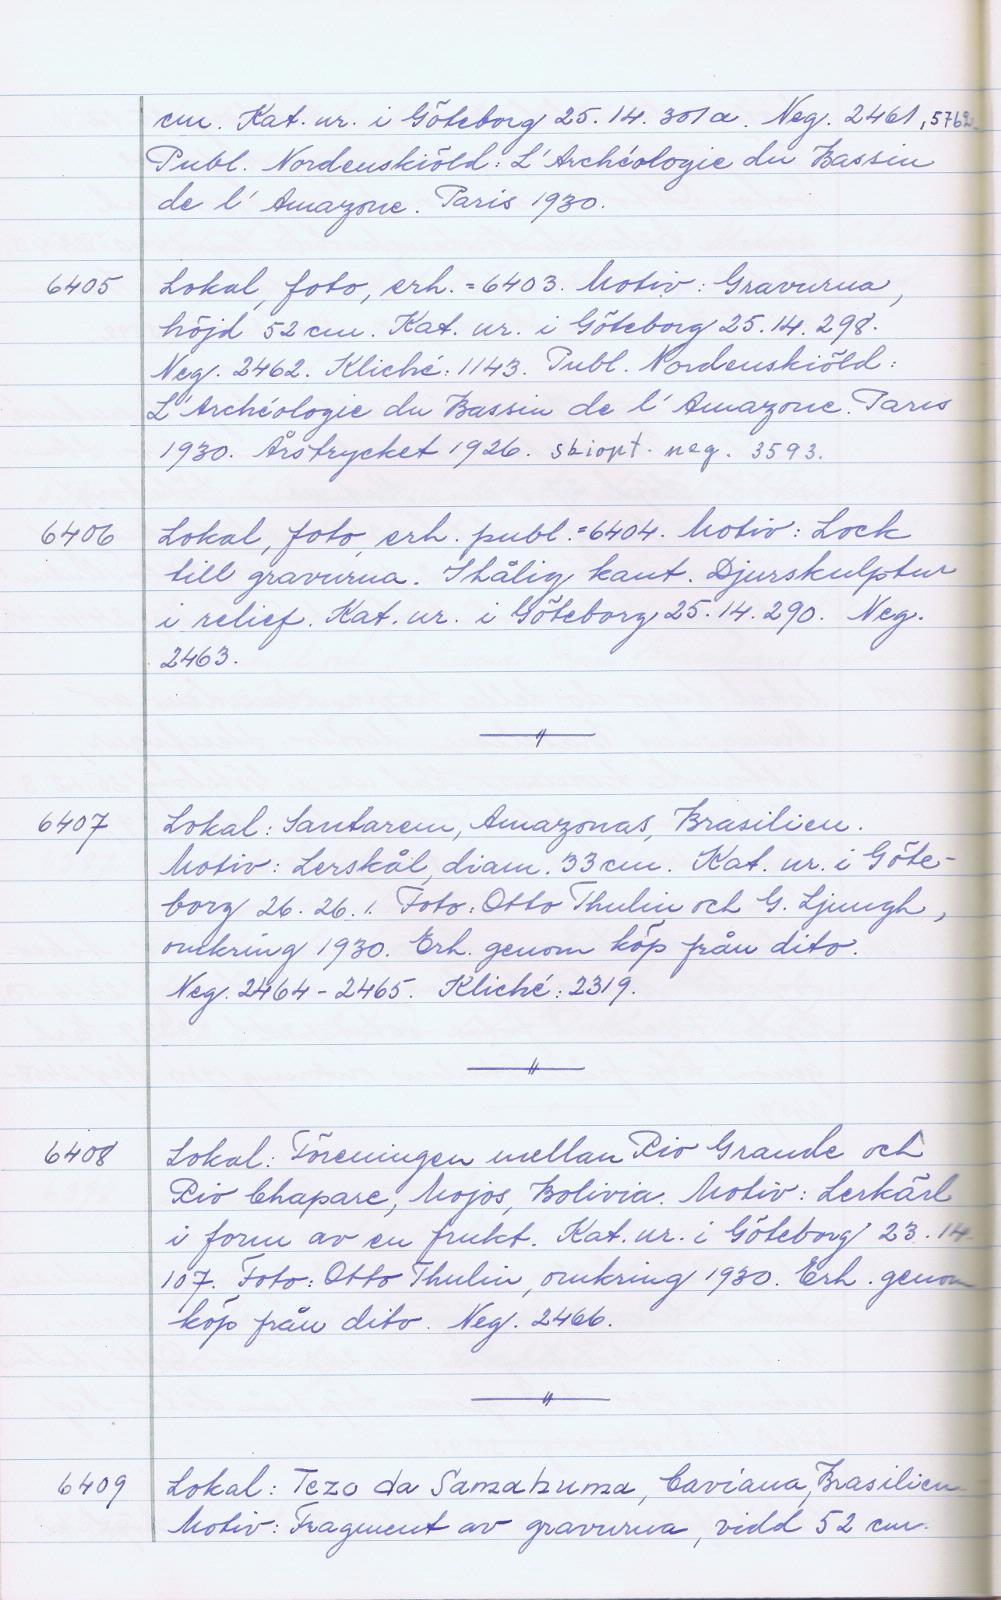 cm. Kat. nr. i Göteborg 25. 14. 301a. Neg. 2461, 5762
Publ. Nordenskiöld: L'Archéologie du Bassin
de l' Amazone. Paris 1930.
6405 Lokal, foto, erh. = 6403. Motiv: Gravurna,
höjd 52 cm. Kat. nr. i Göteborg 25. 14. 298.
Neg. 2462. Kliché: 1143. Publ. Nordenskiöld:
L'Archéologie du Bassin de l' Amazone. Paris
1930. Årstrycket 1926. skiopt. neg. 3593.
6406 Lokal, foto, erh. publ. = 6404. Motiv: Lock
till gravurna. Ihålig kant. Djurskulptur
i relief. Kat. nr. i Göteborg 25. 14. 290. Neg.
2463.
6407 Lokal: Santarem, Amazonas, Brasilien.
Motiv: Lerskål, diam. 33 cm. Kat. nr. i Göte-
borg 26. 26. 1. Foto: Otto Thulin och G. Ljungh,
omkring 1930. Erh. genom köp från dito.
Neg. 2464 - 2465. Kliché: 2319.
6408 Lokal: Föreningen mellan Rio Grande och
Rio Chapare, Mojos, Bolivia. Motiv: Lerkärl
i form av en frukt. Kat. nr. i Göteborg 23. 14.
107. Foto: Otto Thulin, omkring 1930. Erh. genom
köp från dito. Neg. 2466.
6409 Lokal: Tezo da Samahuma, Caviana, Brasilien
Motiv: Fragment av gravurna, vidd 52 cm.